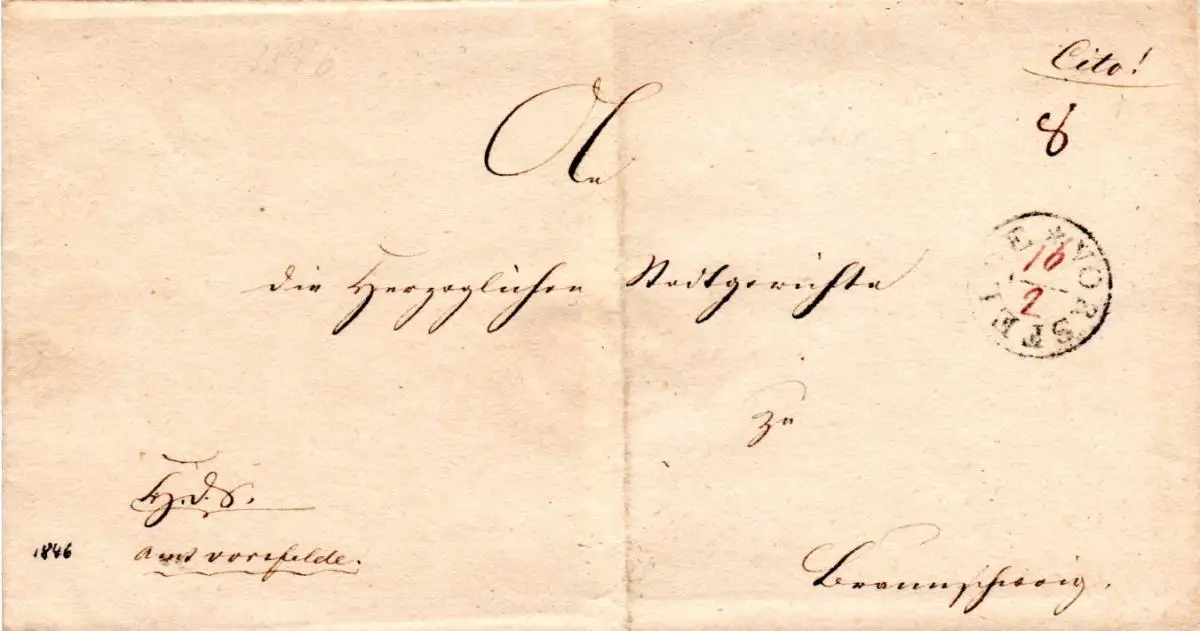 1846
Cito!
8
An
VORSFELDE *
16
2
die Herzoglichen Stadtgerichte
zu
H.d.S.
1846
Amt Vorsfelde.
Braunschweig.